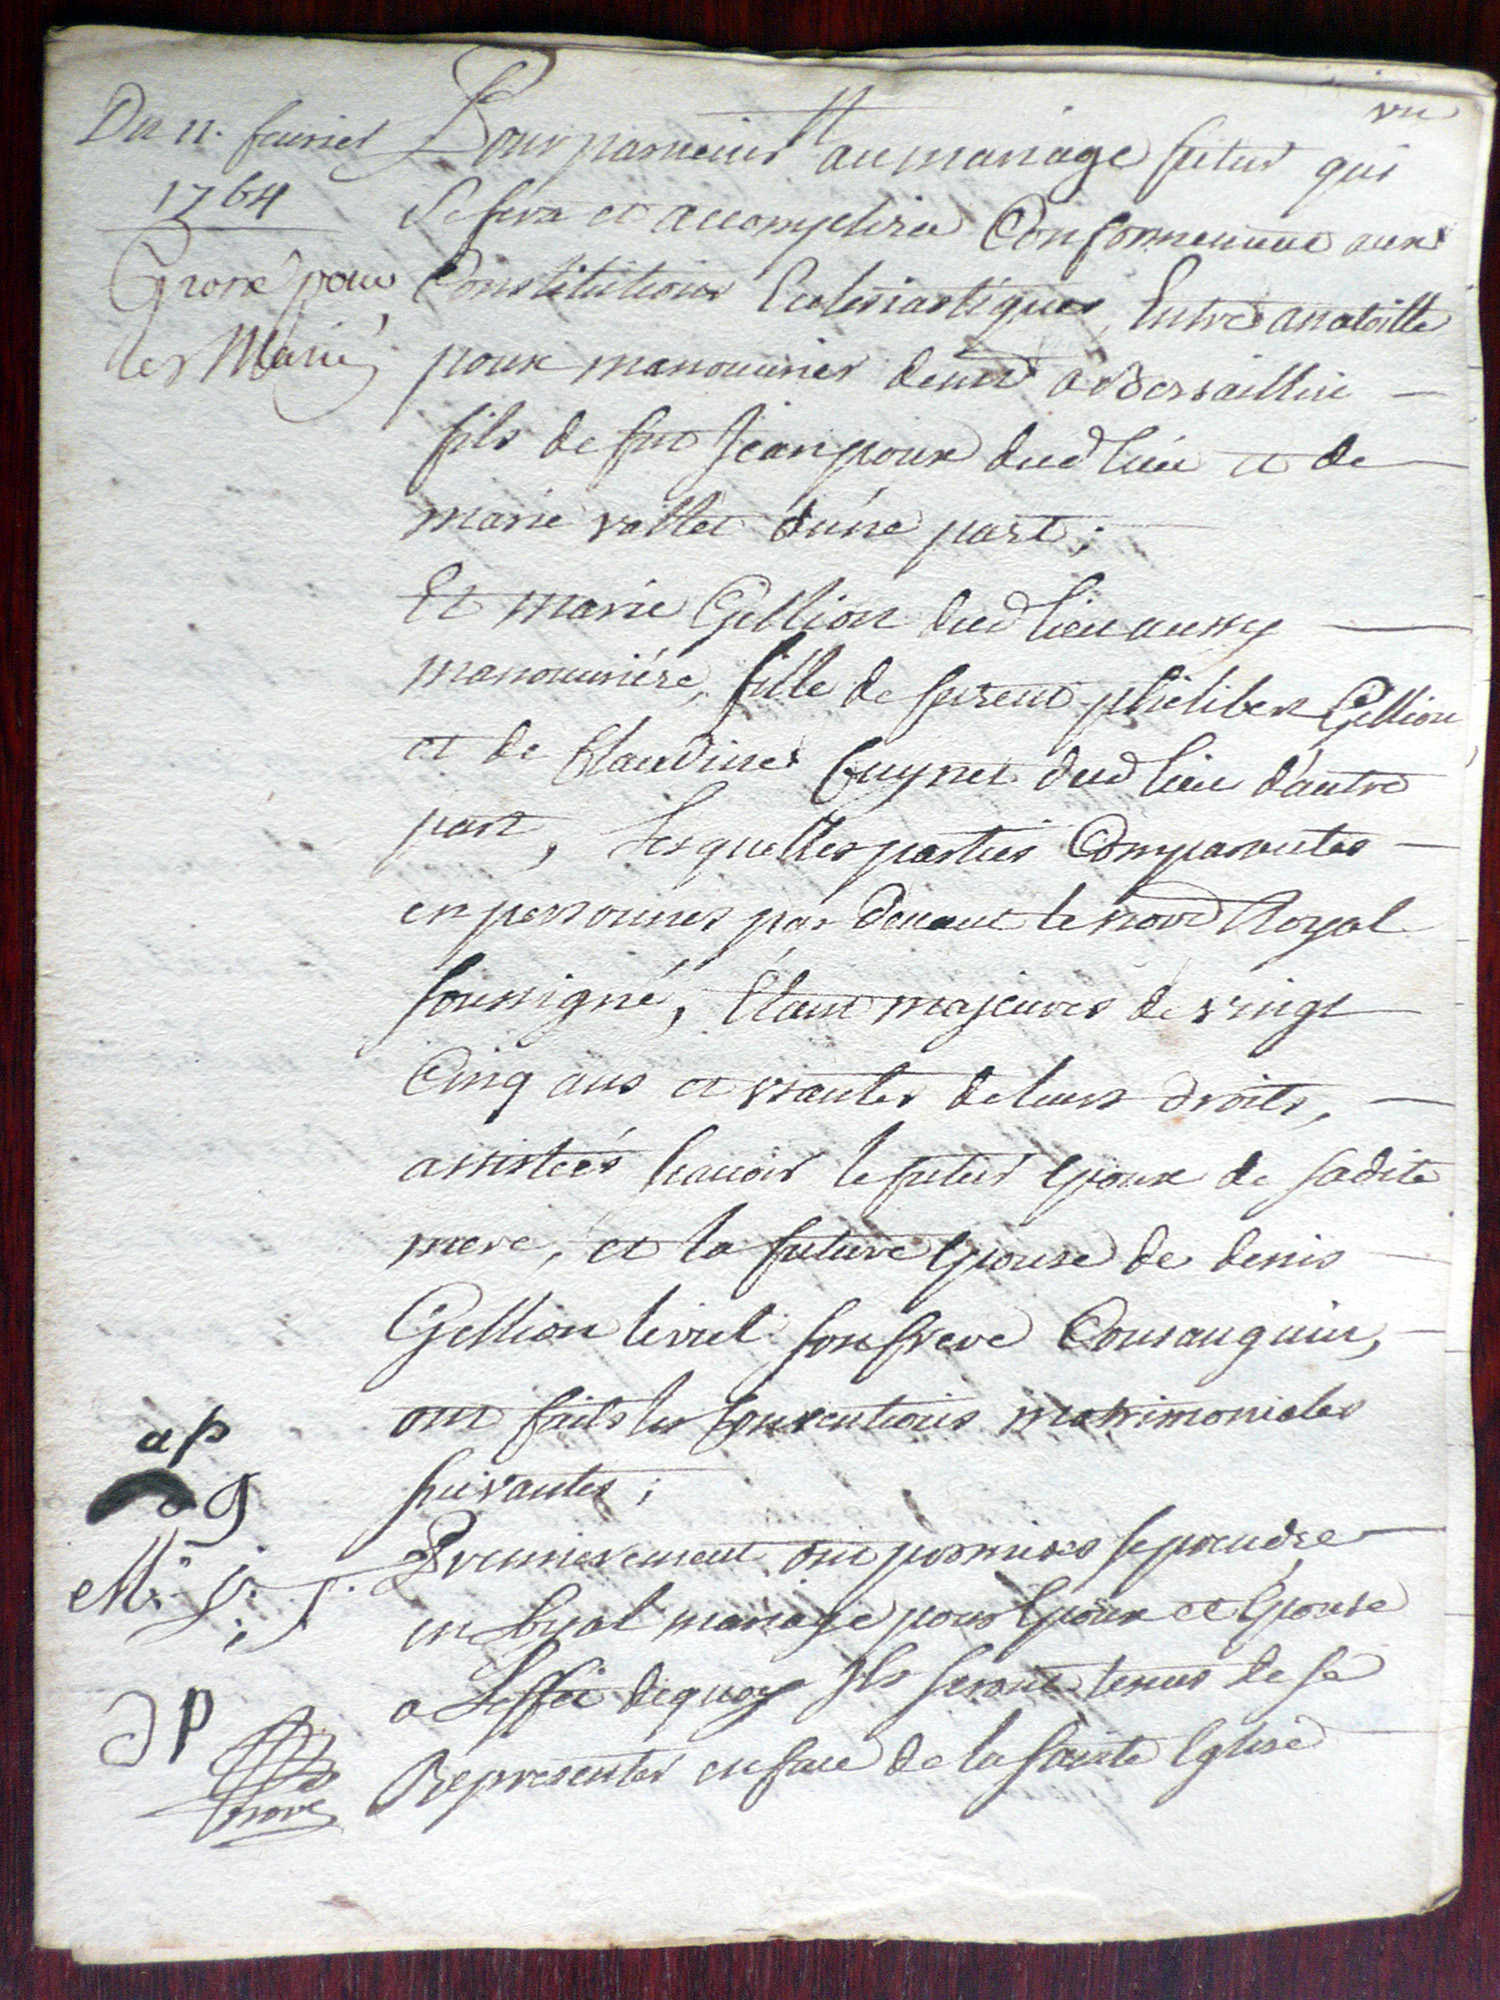 vu
Du 11. feuvrier
1764
Grossé pour
les Mariés
Pour parvenir au mariage futur qui
Se fera et accomplira Conformement aux
Constitutions Ecclesiastiques, Entre anatoille
poux manouvrier demt a Bersaillin
fils de fut Jean poux dud lieu et de
marie vallet d'une part;
Et marie Gillion dud lieu aussy
manouvriére, fille de furent philibert Gillion
et de Claudine Guynet dud lieu d'autre
part, Lesquelles parties Comparantes
en personnes par devant le nore Royal
soussigné, Etant majeures de vingt
Cinq ans et usantes de leurs droits,
assistées scavoir le futur Epoux de sadite
mere, et la future Epouse de denis
Gillion son frere Consanguin,
ont faits les Conventions matrimoniales
suivantes;
Premierement ont promises se prendre
en Loyal mariage pour Epoux et Epouse
a L'effet de quoy Ils seront tenus de se
Representer en face de la sainte Eglise
ap
dg
M.
JP
nore